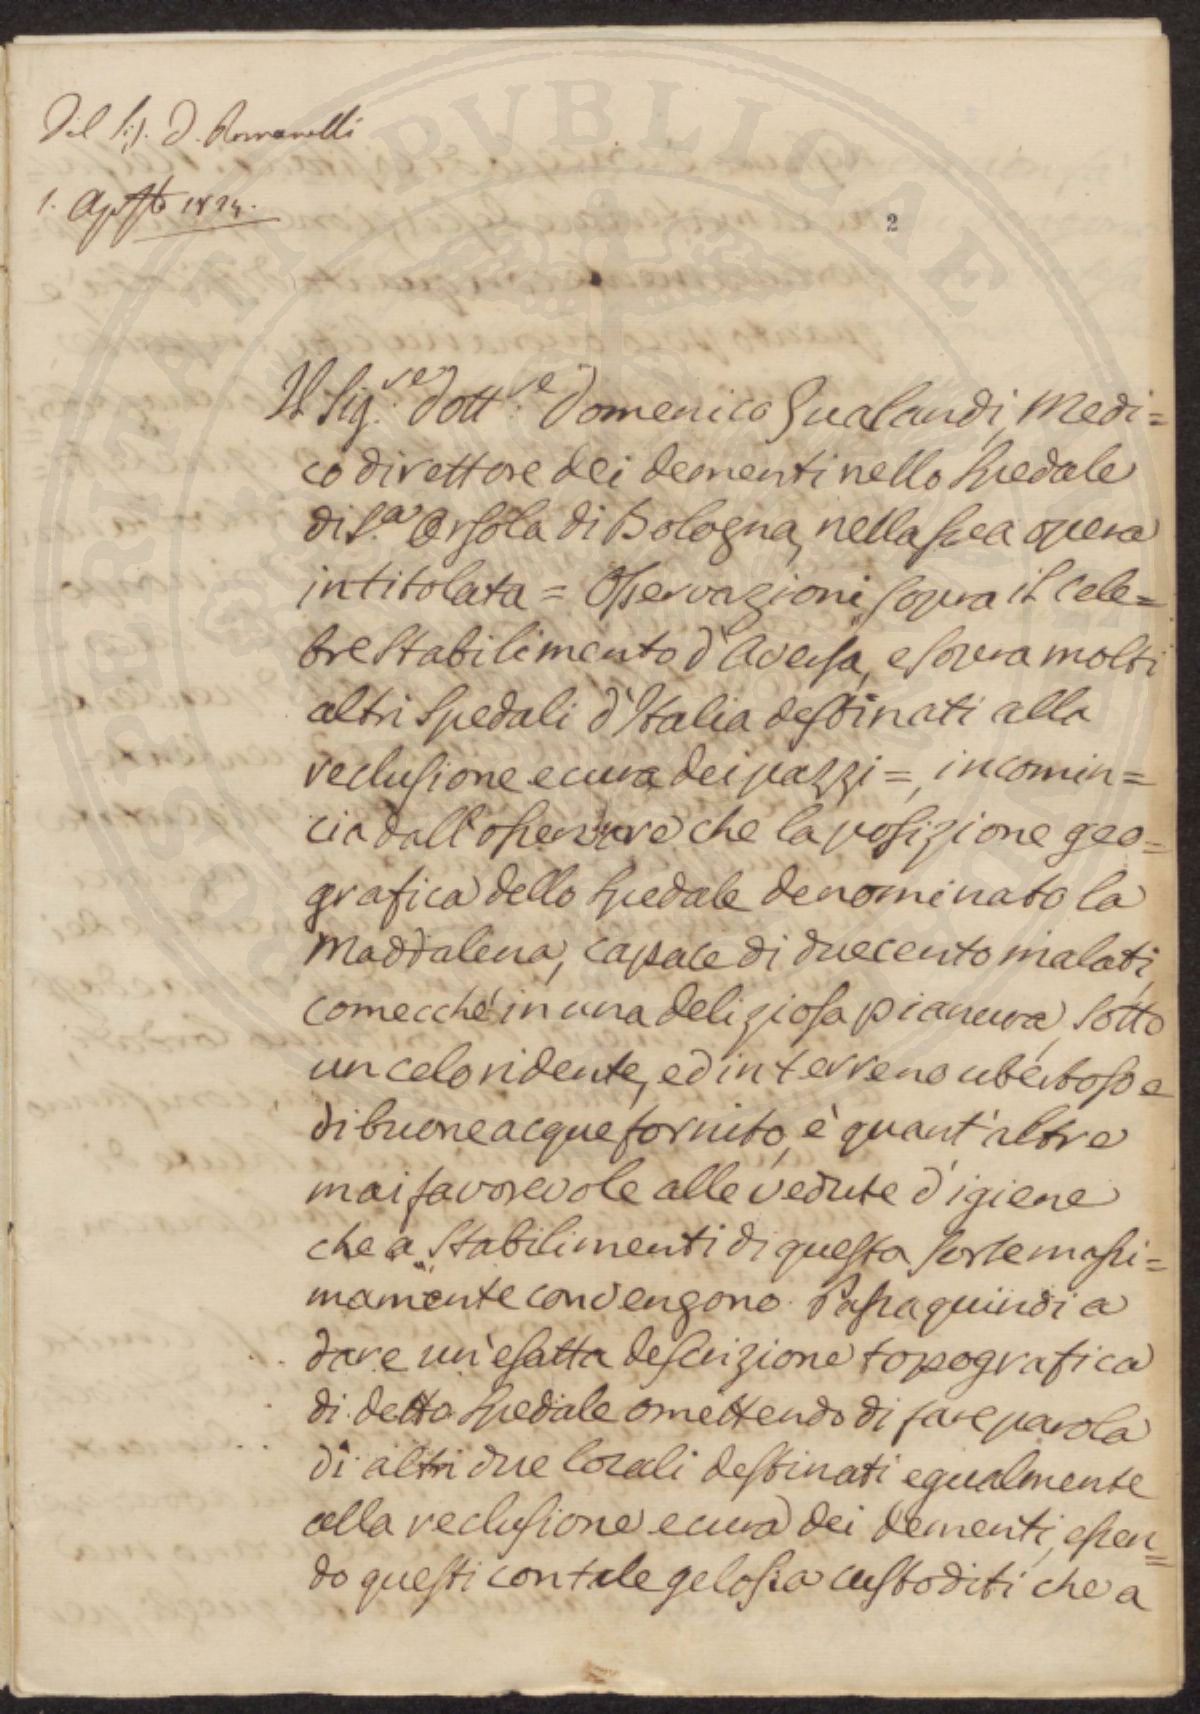 Del Sig. D. Romanelli
1. Agosto 1824.
2
Il Sig.re Dott.re Domenico Gualandi, Medi=
co direttore dei dementi nello Spedale
di S.a Orsola di Bologna, nella sua opera
intitolata = Osservazioni sopra il Cele=
bre Stabilimento d'Aversa, e sovra molti
altri Spedali d'Italia destinati alla
reclusione e cura dei pazzi =, incomin=
cia dall'osservare che la posizione geo=
grafica dello Spedale denominato la
Maddalena, capace di duecento malati,
comecchè in una deliziosa pianura, sotto
un celo ridente, ed in terreno ubertoso e
di buone acque fornito, è quant'altre
mai favorevole alle vedute d'igiene
che a Stabilimenti di questa sorte massi=
mamente convengono. Passa quindi a
dare un'esatta descrizione topografica
di detto Spedale omettendo di fare parola
di altri due locali destinati egualmente
alla reclusione e cura dei dementi, essen=
do questi con tale gelosia custoditi che a
SOSPERITATI PVBLICAE